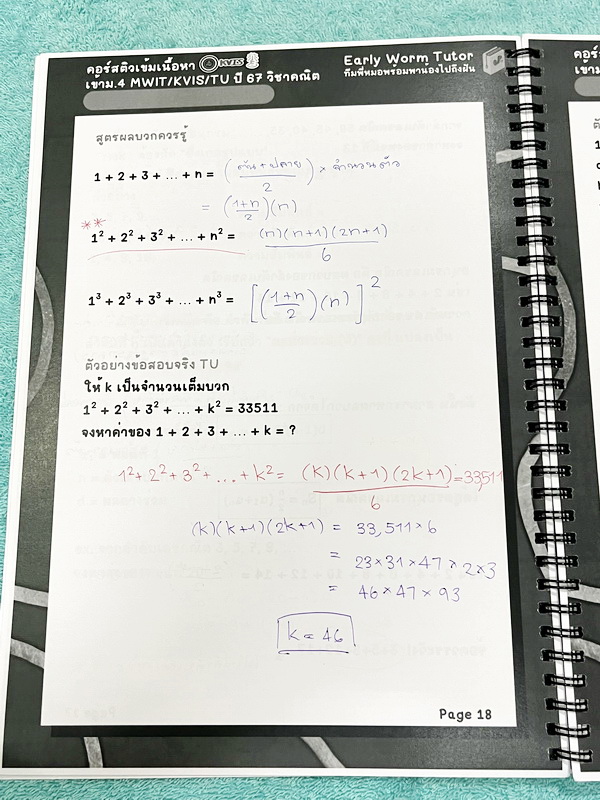 คอร์สติวเข้มเนื้อหา KVIS
เข้าม.4 MWIT/KVIS/TU ปี 67 วิชาคณิต
Early Worm Tutor
ทีมพี่หมอพร้อมพาน้องไปถึงฝัน
สูตรผลบวกควรรู้
1 + 2 + 3 + ... + n = (ต้น+ปลาย/2) × จำนวนตัว
= (1+n/2)(n)
**
1² + 2² + 3² + ... + n² = (n)(n+1)(2n+1)/6
1³ + 2³ + 3³ + ... + n³ = [(1+n/2)(n)]²
ตัวอย่างข้อสอบจริง TU
ให้ k เป็นจำนวนเต็มบวก
1² + 2² + 3² + ... + k² = 33511
จงหาค่าของ 1 + 2 + 3 + ... + k = ?
1²+2²+3²+...+k² = (k)(k+1)(2k+1)/6 = 33511
(k)(k+1)(2k+1) = 33,511×6
= 23×31×47×2×3
= 46×47×93
k = 46
Page 18